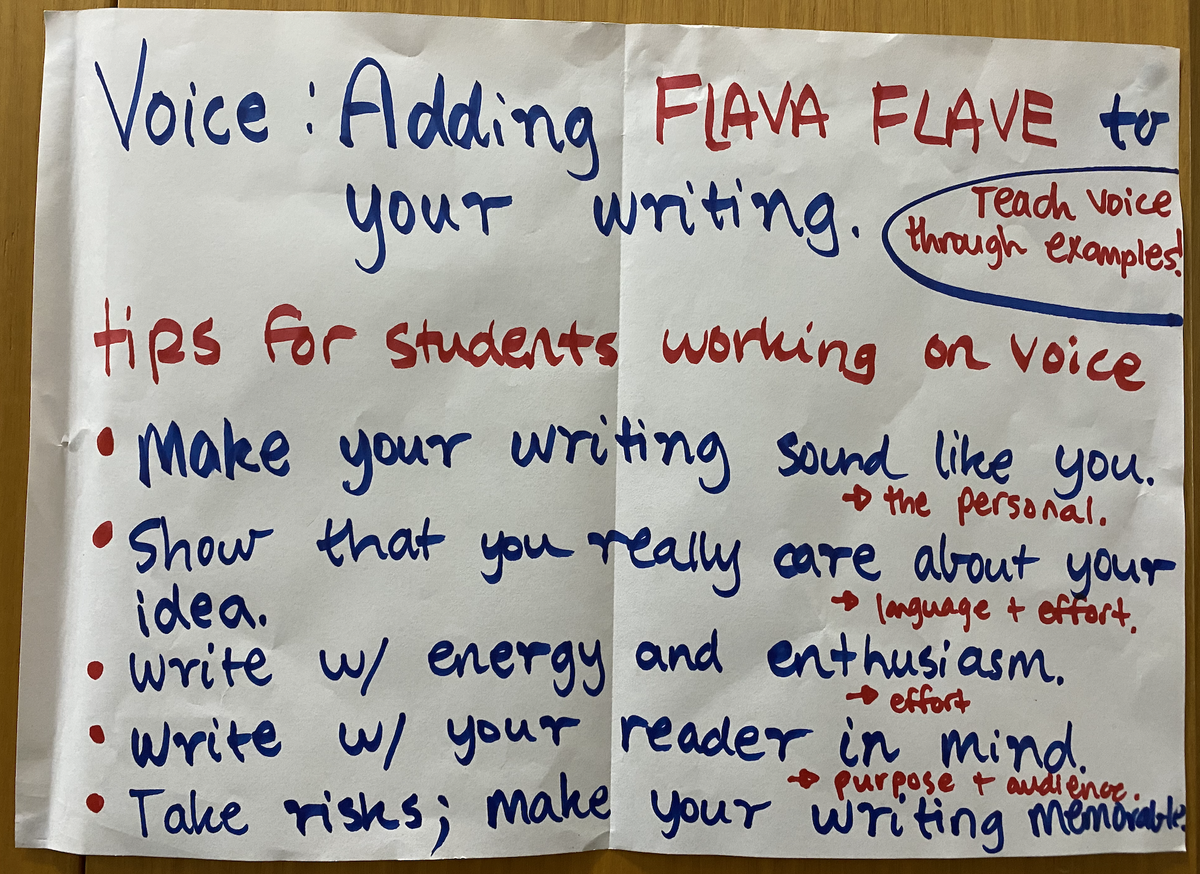 Voice: Adding FLAVA FLAVE to
your writing.
Teach voice
through examples!
tips for students working on voice
• Make your writing sound like you.
→ the personal.
• Show that you really care about your
idea.
→ language + effort.
• Write w/ energy and enthusiasm.
→ effort
• Write w/ your reader in mind.
→ purpose + audience.
• Take risks; make your writing memorable.